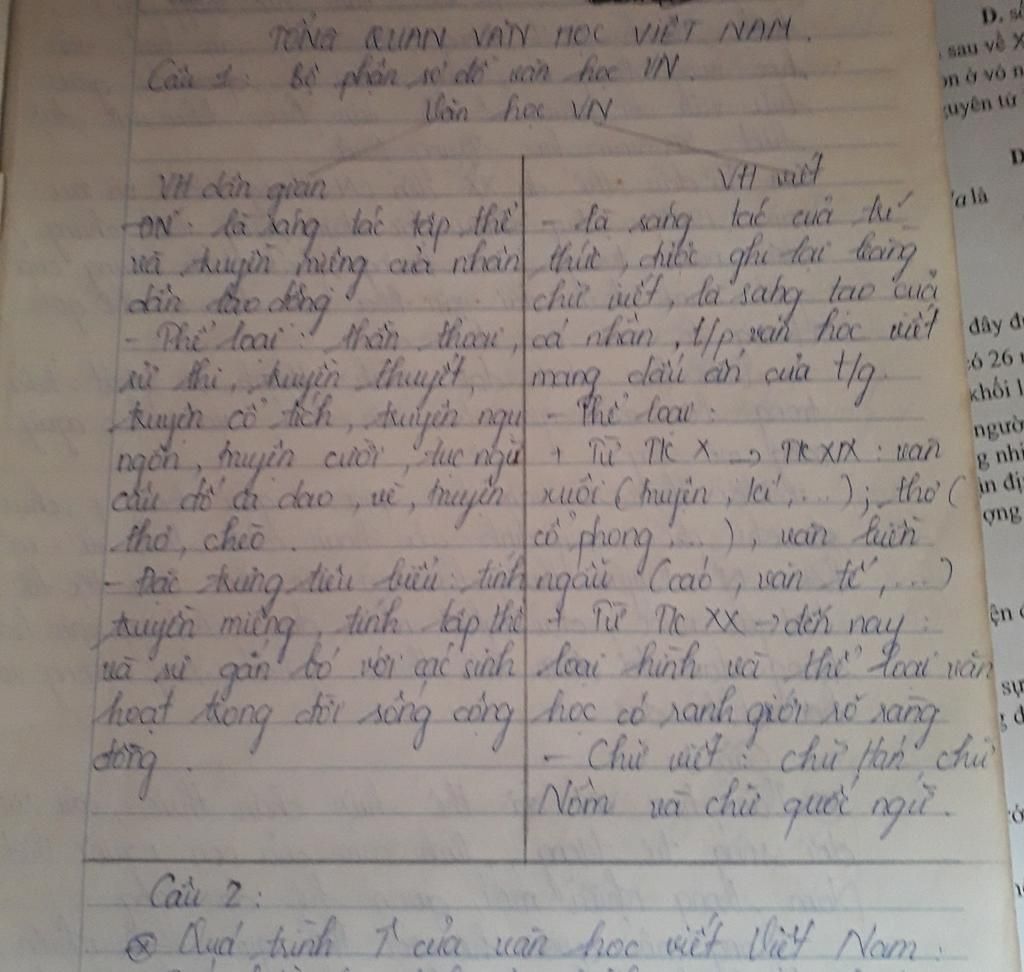 TỔNG QUAN VĂN HỌC VIỆT NAM.
Câu 1: Bộ phận sơ đồ văn học VN.
Văn học VN
VH dân gian
- ĐN: là sáng tác tập thể
và truyền miệng của nhân
dân lao động
- Thể loại: thần thoại,
sử thi, truyền thuyết,
truyện cổ tích, truyện ngụ
ngôn, truyện cười, tục ngữ
câu đố ca dao, vè, truyện
thơ, chèo.
- Đặc trưng tiêu biểu: tính
truyền miệng, tính tập thể
và sự gắn bó với các sinh
hoạt trong đời sống cộng
đồng.
VH viết
- là sáng tác của trí
thức, được ghi lại bằng
chữ viết, là sáng tạo của
cá nhân, t/p văn học viết
mang dấu ấn của t/g.
- Thể loại:
+ Từ TK X -> TK XIX: văn
xuôi (truyện, kí, ...); thơ (
cổ phong, ...), văn biền
ngẫu (cáo, văn tế, ...)
+ Từ TK XX -> đến nay:
loại hình và thể loại văn
học có ranh giới rõ ràng
- Chữ viết: chữ Hán, chữ
Nôm và chữ quốc ngữ.
Câu 2:
⊗ Quá trình ↑ của văn học viết Việt Nam:
D.
sau về X
ở vỏ n
guyên tử
D
a là
đây đ
26
khối l
ngườ
g nhi
ợng
sự